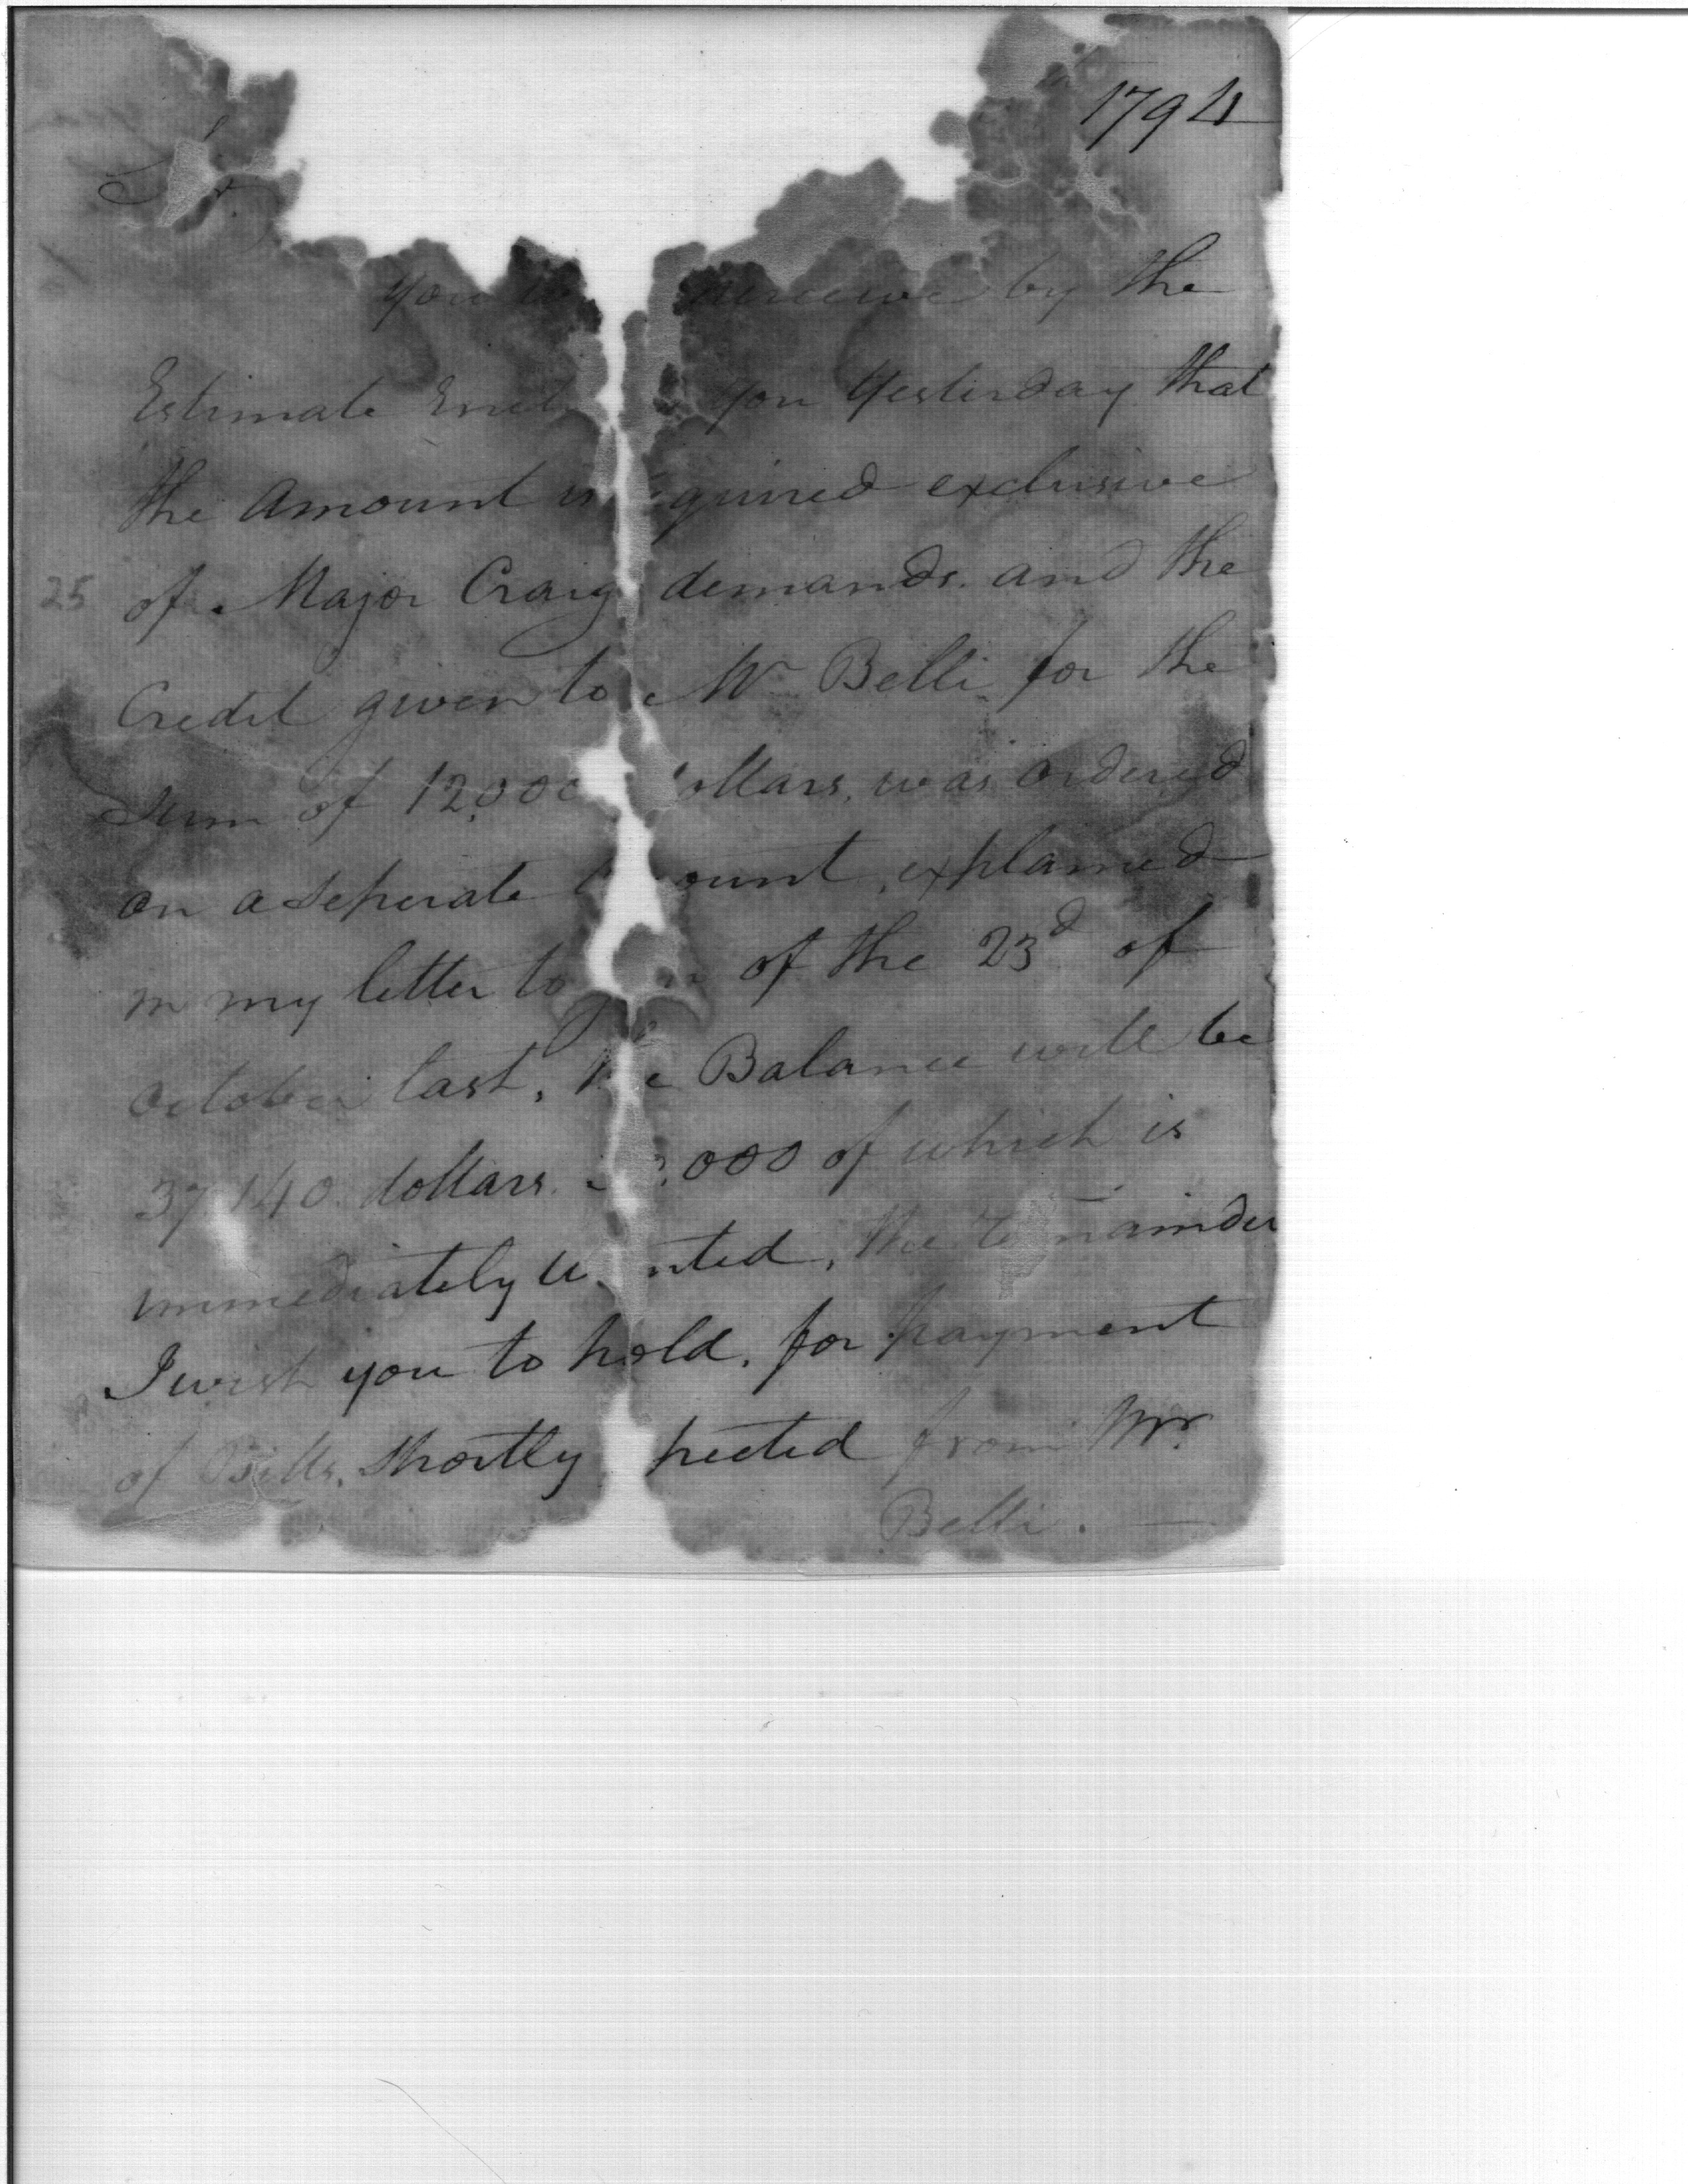 1794
Sir
you by the
Estimate you Yesterday that
the Amount exclusive
25
of Major Craig demands. and the
Credit given to Mr Belli for the
Sum of 12,000 ollars. was ordered
on a seperate ount, explained
in my letter to of the 23d of
october last, Balance will be
37,140 dollars. 000 of which is
immediately nted, the ainder
I wish you to hold, for payment
of Bills, shortly pected from Mr.
Belli. —